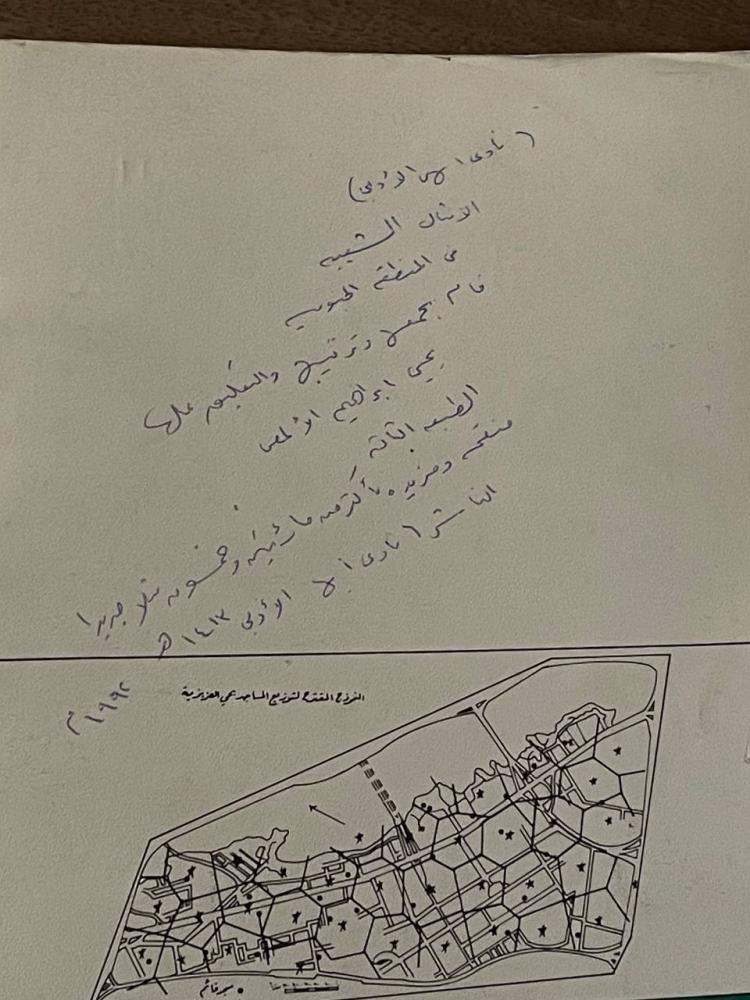 (نادى ابها الأدبى)
الامثال الشعبيه
فى المنطقه الجنوبيه
قام بجمعها وترتيبها والتعليق عليها
يحيى ابراهيم الألمعى
الطبعه الثانيه
منقحه ومزيده بأكثر من مائتين وخمسون مثلا جديدا
الناشر / نادى أبها الأدبى ١٤١٣ هـ
١٩٩٢ م
النموذج المقترح لتوزيع المساجد بحي العزيزية
مسجد قائم